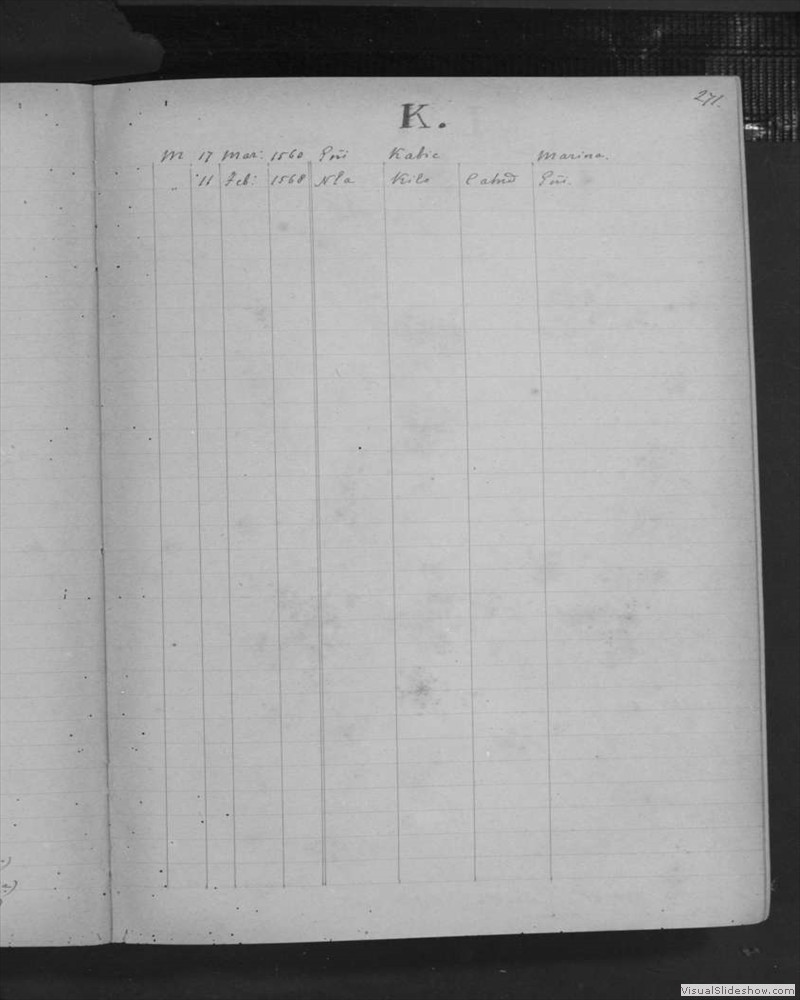 271.
K.
M 17 Mar: 1560 Kabic Marina.
11 Feb: 1568 Nla Kilo
a)
VisualSlideshow.com